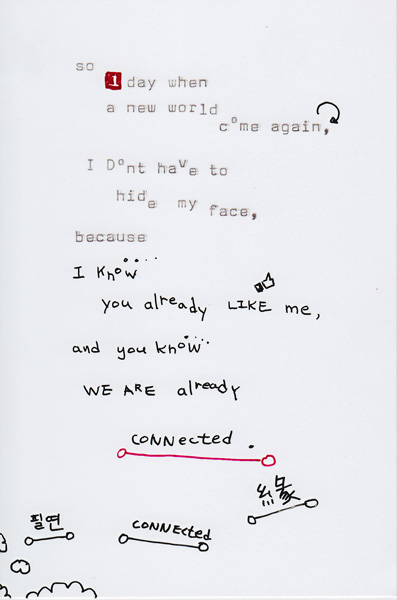 so
1 day when
a new world
come again,
I Dont have to
hide my face,
because
I know
you already LIKE me,
and you know
WE ARE already
CONNected.
緣
필연
CONNECted